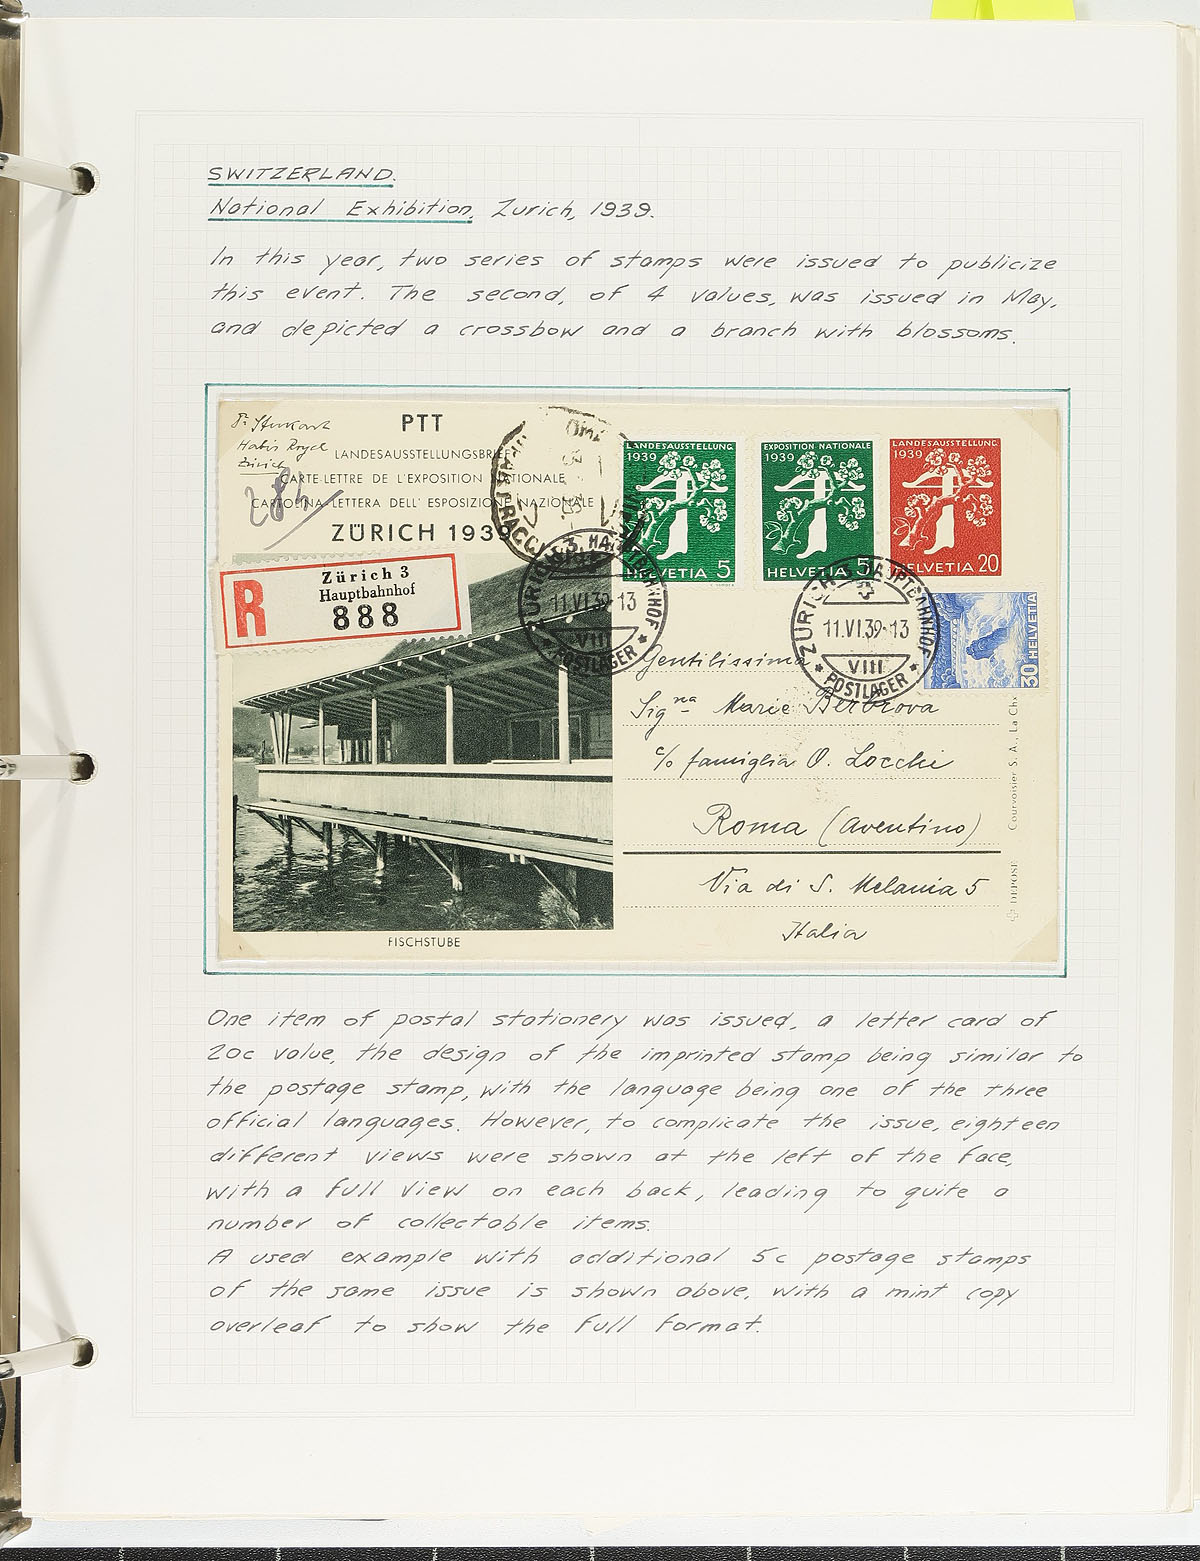 SWITZERLAND.
National Exhibition, Zurich, 1939.
In this year, two series of stamps were issued to publicize
this event. The second, of 4 values, was issued in May,
and depicted a crossbow and a branch with blossoms.
Zürich
PTT
LANDESAUSSTELLUNGSBRIEF
CARTE-LETTRE DE L'EXPOSITION NATIONALE
CARTOLINA-LETTERA DELL' ESPOSIZIONE NAZIONALE
ZÜRICH 1939
R
Zürich 3
Hauptbahnhof
888
LANDESAUSSTELLUNG
1939
HELVETIA 5
EXPOSITION NATIONALE
1939
HELVETIA 5
LANDESAUSSTELLUNG
1939
HELVETIA 20
30 HELVETIA
ZÜRICH 3 HAUPTBAHNHOF
11.VI.39-13
VIII
POSTLAGER
ZÜRICH 3 HAUPTBAHNHOF
11.VI.39-13
VIII
POSTLAGER
Gentilissima
Sig.na Marie Berbrova
c/o famiglia O. Locchi
Roma (Aventino)
Via di S. Melania 5
Italia
Courvoisier S. A., La Ch
DEPOSE
FISCHSTUBE
One item of postal stationery was issued, a letter card of
20c value, the design of the imprinted stamp being similar to
the postage stamp, with the language being one of the three
official languages. However, to complicate the issue, eighteen
different views were shown at the left of the face,
with a full view on each back, leading to quite a
number of collectable items.
A used example with additional 5c postage stamps
of the same issue is shown above, with a mint copy
overleaf to show the full format.